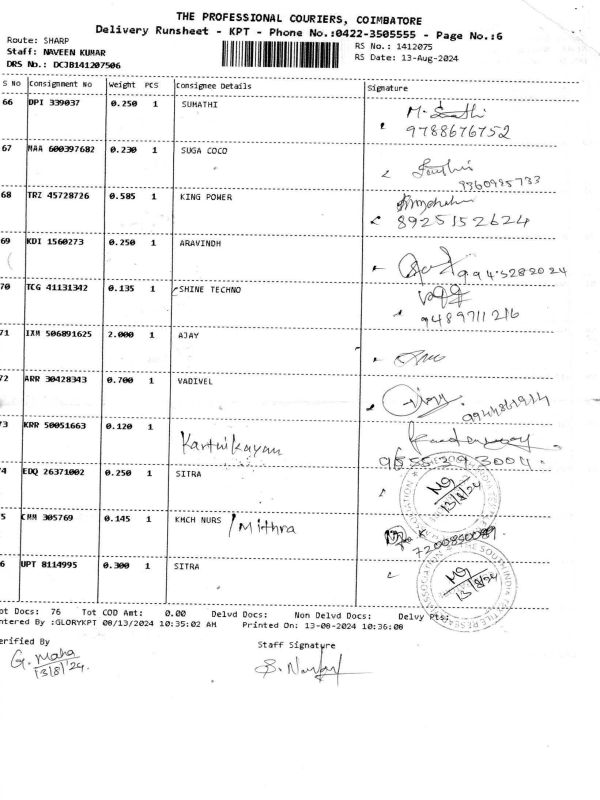 THE PROFESSIONAL COURIERS, COIMBATORE
Delivery Runsheet - KPT - Phone No.:0422-3505555 - Page No.:6
Route: SHARP
RS No.: 1412075
Staff: NAVEEN KUMAR
RS Date: 13-Aug-2024
DRS No.: DCJB141207506
S No Consignment No Weight PCS Consignee Details Signature
66 DPI 339037 0.250 1 SUMATHI
9788676752
67 MAA 600397682 0.230 1 SUGA COCO
9360995733
68 TRZ 45728726 0.585 1 KING POWER
8925152624
69 KDI 1560273 0.250 1 ARAVINDH
9945282024
70 TCG 41131342 0.135 1 SHINE TECHNO
9489711216
71 IXM 506891625 2.000 1 AJAY
72 ARR 30428343 0.700 1 VADIVEL
73 KRR 50051663 0.120 1
Karthikayan
74 EDQ 26371002 0.250 1 SITRA
13/8/24
5 CMM 305769 0.145 1 KMCH NURS /Mithra
6 UPT 8114995 0.300 1 SITRA
13/8/24
ot Docs: 76 Tot COD Amt: 0.00 Delvd Docs: Non Delvd Docs: Delvy Pts:
ntered By :GLORYKPT 08/13/2024 10:35:02 AM Printed On: 13-08-2024 10:36:08
erified By Staff Signature
G. Maha
13/8/24.